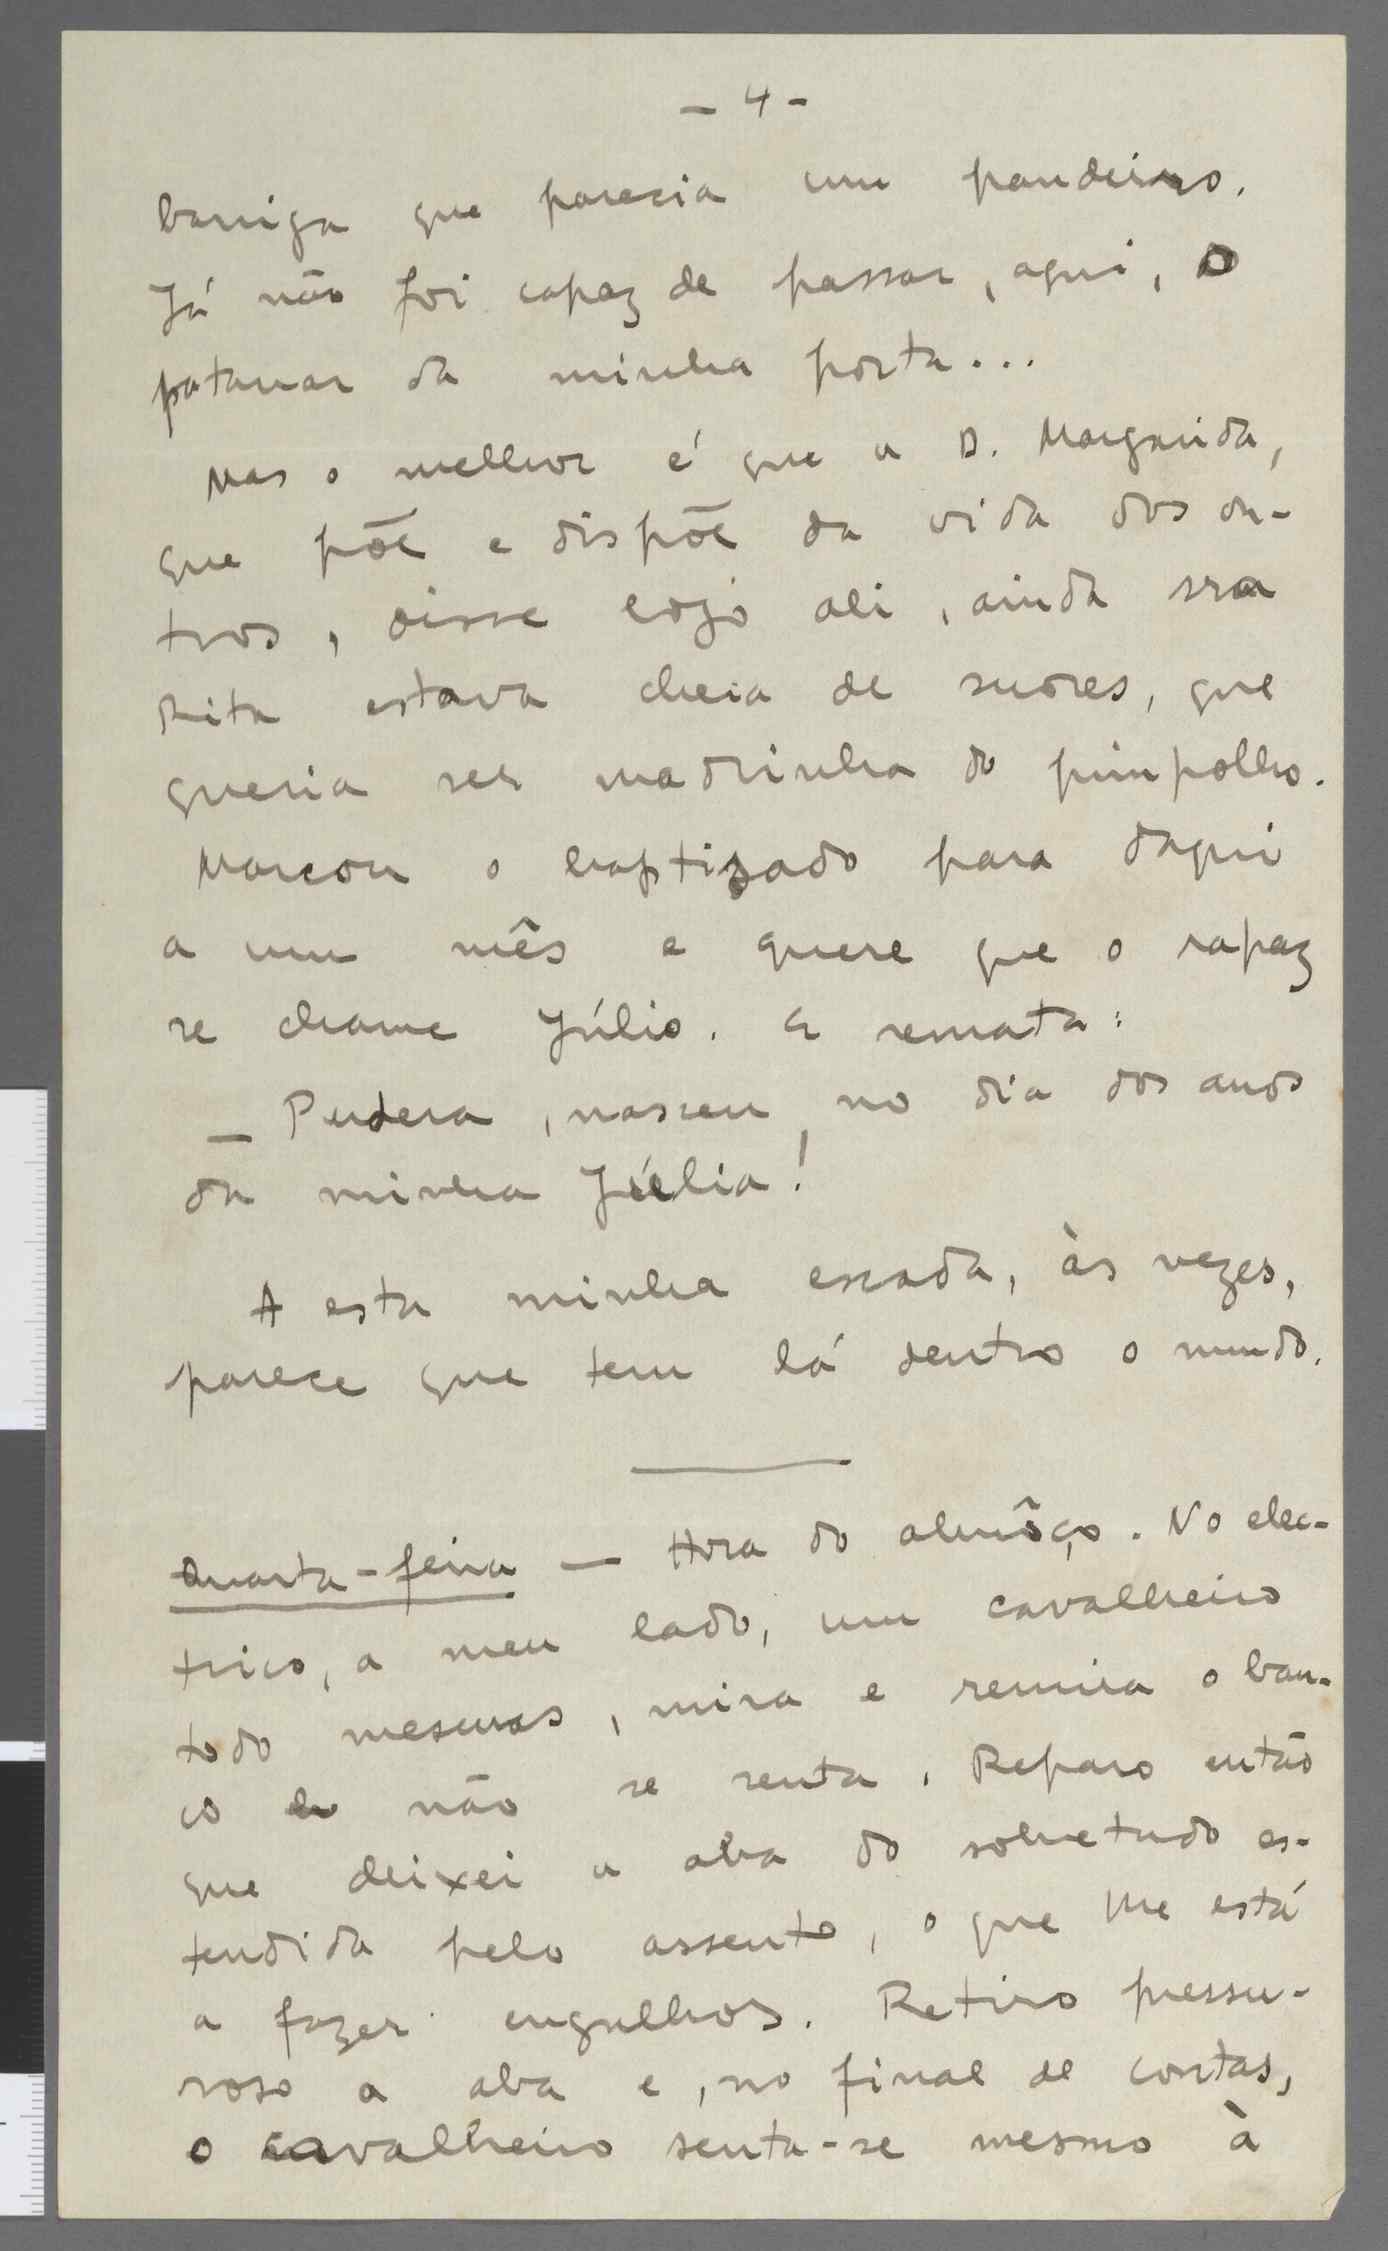 - 4 -
barriga que parecia um pandeiro.
Já não foi capaz de passar, aqui, o
patamar da minha porta...
Mas o melhor é que a D. Margarida,
que põe e dispõe da vida dos ou-
tros, disse logo ali, ainda sra
Rita estava cheia de suores, que
queria ser madrinha do pimpolho.
Marcou o baptizado para daqui
a um mês e quere que o rapaz
se chame Júlio. E remata:
- Pudera, nasceu no dia dos anos
da minha Júlia!
A esta minha escada, às vezes,
parece que tem lá dentro o mundo.
Quarta-feira - Hora do almôço. No elec-
trico, a meu lado, um cavalheiro
todo mesuras, mira e remira o ban-
co e não se senta. Reparo então
que deixei a aba do sobretudo es-
tendida pelo assento, o que lhe está
a fazer engulhos. Retiro pressu-
roso a aba e, no final de contas,
o cavalheiro senta-se mesmo à